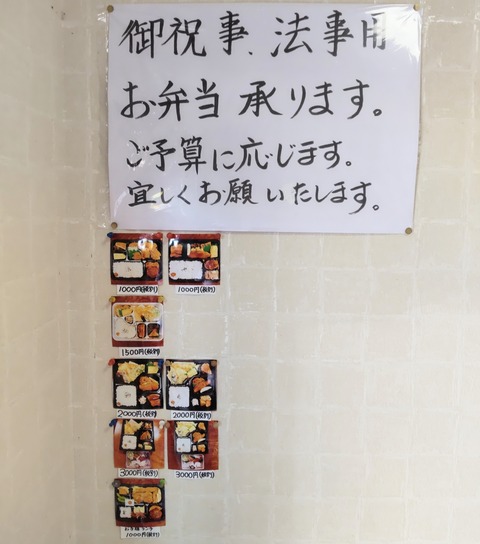 御祝事、法事用
お弁当 承ります。
ご予算に応じます。
宜しくお願いいたします。
1000円(税別) 1000円(税別)
1500円(税別)
2000円(税別) 2000円(税別)
3000円(税別) 3000円(税別)
1000円(税別)